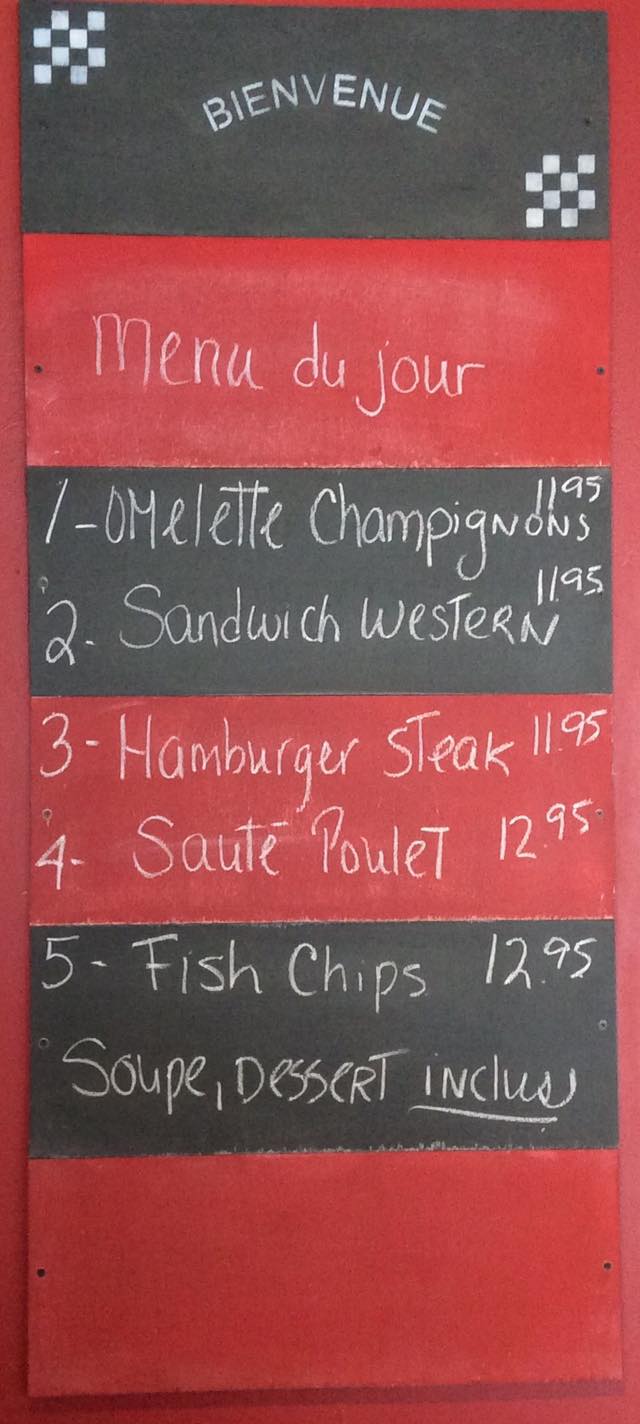 BIENVENUE
Menu du jour
1-Omelette Champignons 11.95
2. Sandwich Western 11.95
3- Hamburger Steak 11.95
4- Sauté Poulet 12.95
5- Fish Chips 12.95
Soupe, Dessert inclus